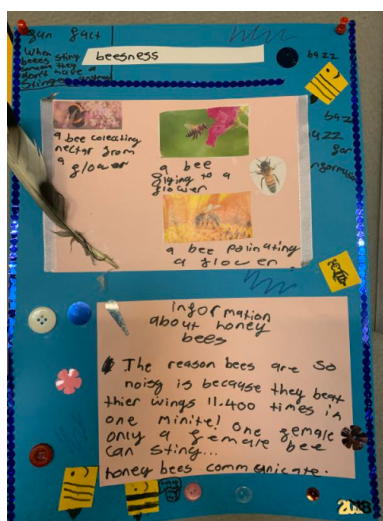 fun fact
When
bees sting
someone they
don't have a
stinger anymore
beesness
bazz
a bee colecting
nectar from
a flower
a bee
flying to a
flower
a bee polinating
a flower
Information
about honey
bees
The reason bees are so
noisy is because they beat
thier wings 11.400 times in
one minite! One female
only a female bee
can sting...
honey bees communicate.
2018